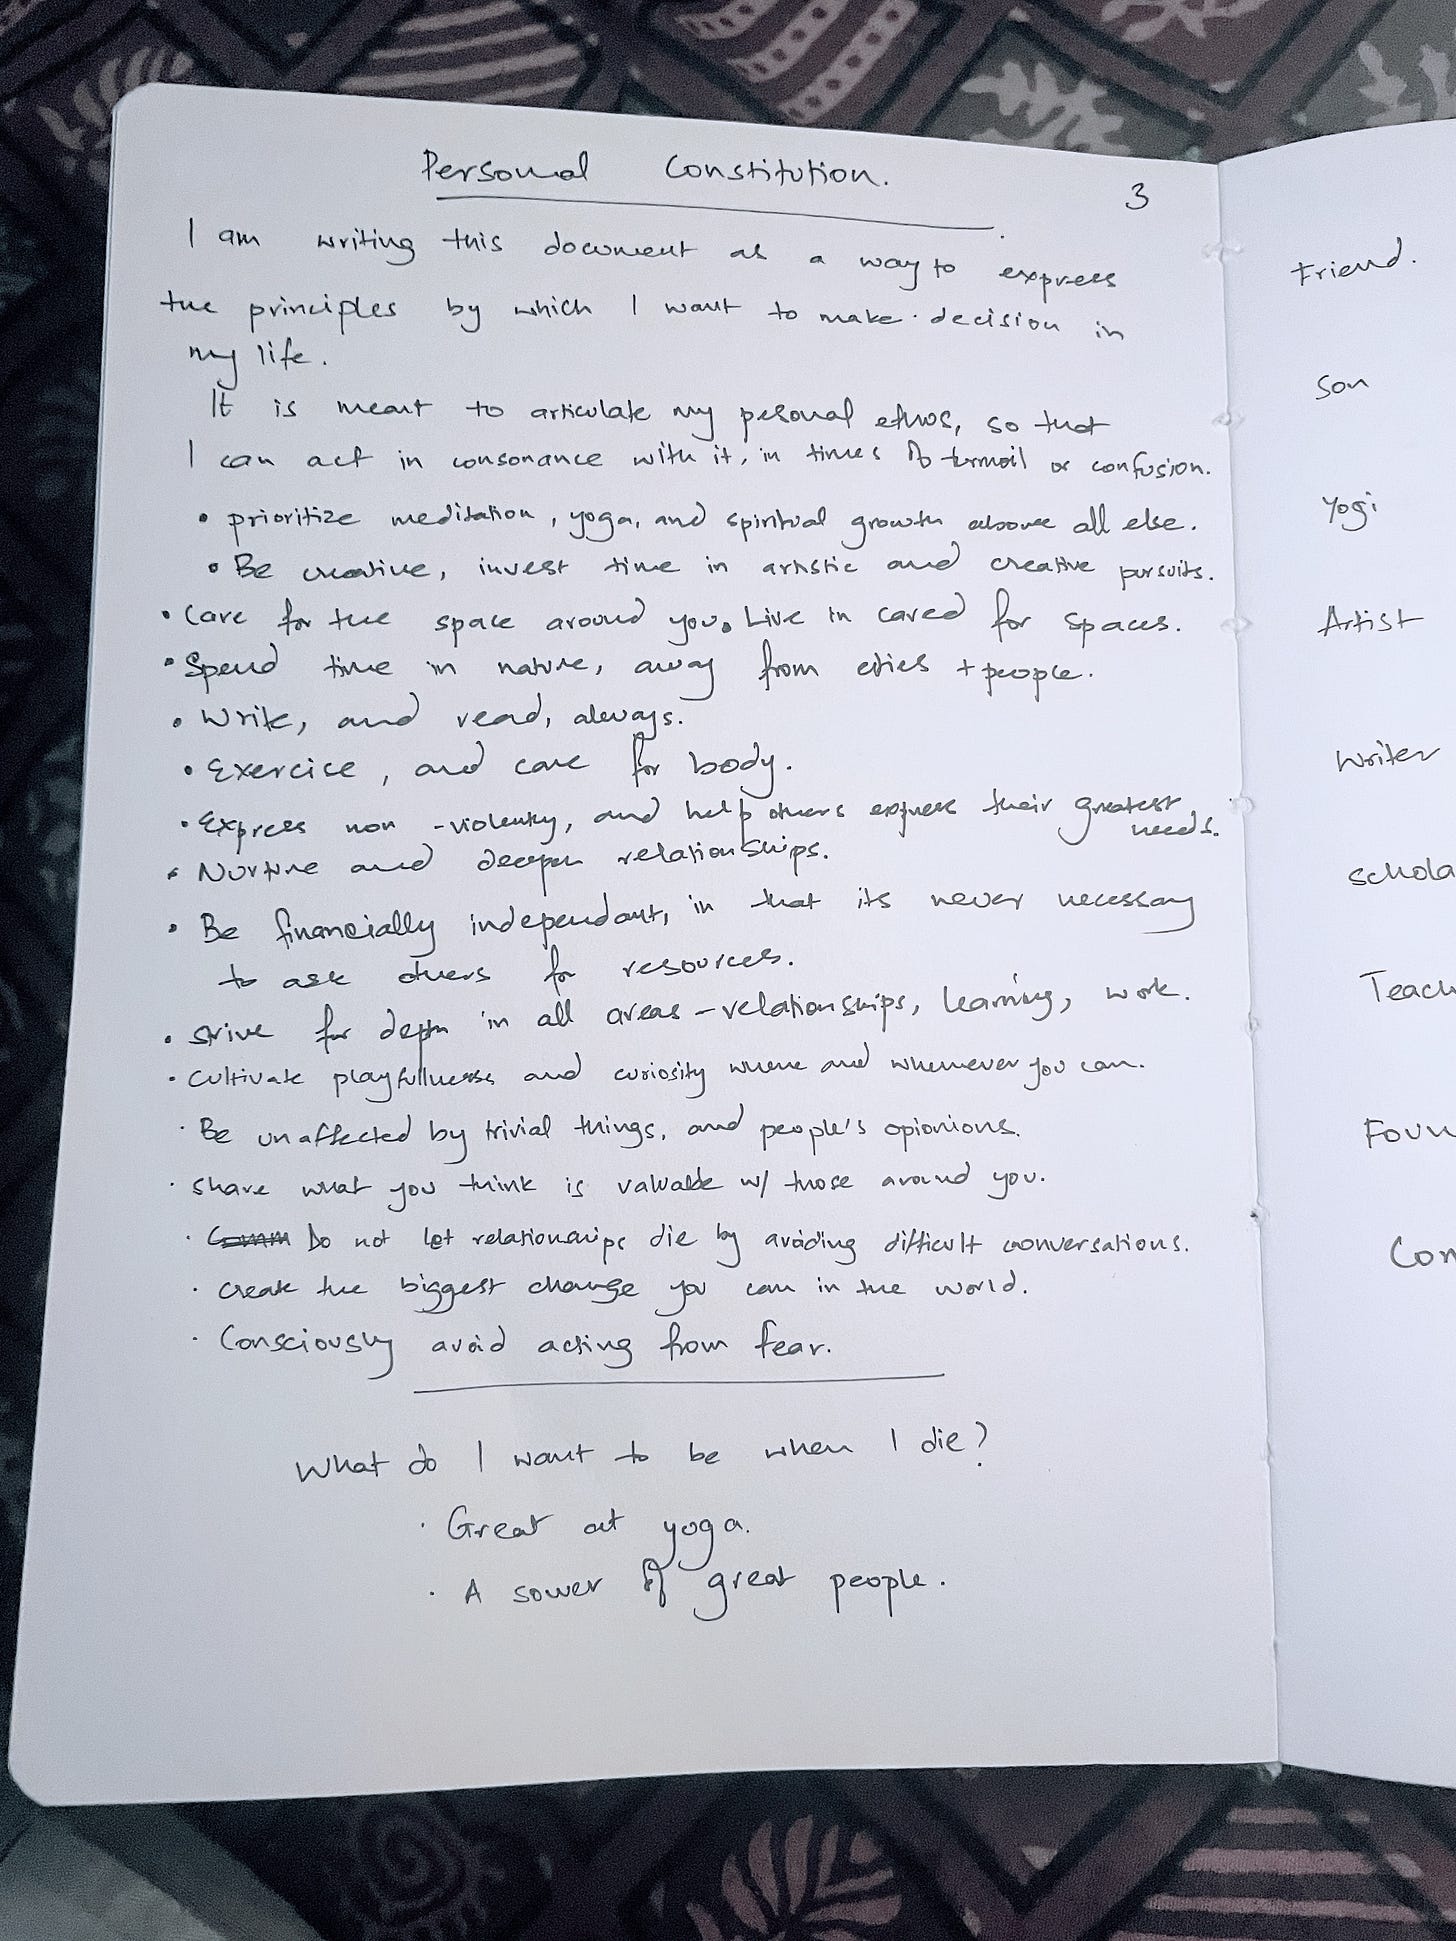 Personal Constitution.
3
I am writing this document as a way to express
the principles by which I want to make decision in
my life.
It is meant to articulate my pesonal ethos, so that
I can act in consonance with it, in times of turmoil or confusion.
• prioritize meditation, yoga, and spiritual growth above all else.
• Be creative, invest time in artistic and creative pursuits.
• Care for the space around you. Live in cared for spaces.
• Spend time in nature, away from cities + people.
• Write, and read, always.
• Exercise, and care for body.
• Express non-violently, and help others express their greatest
needs.
• Nurture and deepen relationships.
• Be financially independant, in that its never necessary
to ask others for resources.
• Strive for depth in all areas - relationships, learning, work.
• Cultivate playfullness and curiosity where and whenever you can.
· Be unaffected by trivial things, and people's opionions.
· Share what you think is valuable w/ those around you.
· Comm Do not let relationships die by avoiding difficult conversations.
· Create the biggest change you can in the world.
· Consciously avoid acting from fear.
What do I want to be when I die?
· Great at yoga.
· A sower of great people.
Friend.
Son
Yogi
Artist
Writer
Schola
Teach
Foun
Con